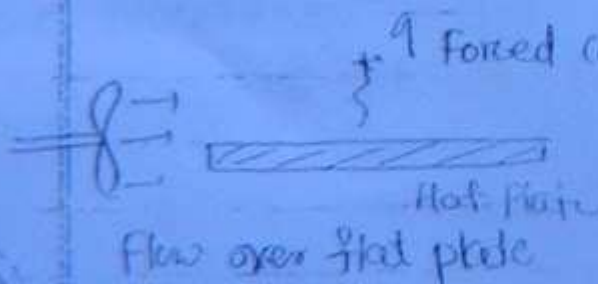 q Forced (
Hot Plate
Flow over flat plate